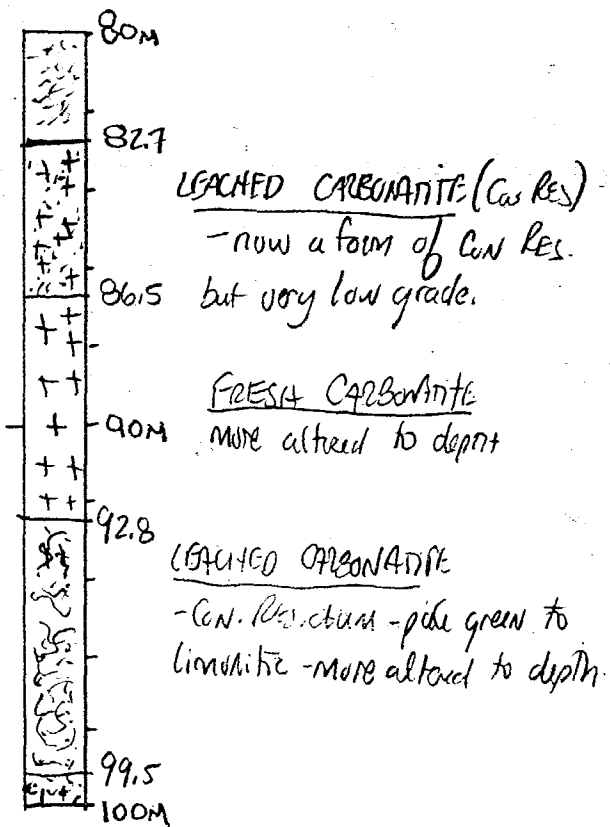 80M
82.7
LEACHED CARBONATITE (Con RES)
- now a form of CON RES.
86.5
but very low grade.
FRESH CARBONATITE
90M
more altered to depth
92.8
LEACHED CARBONATITE
- Con. - pale green to
limonitic - more altered to depth.
99.5
100M